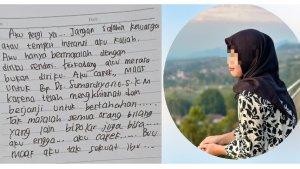 Aku pergi ya... Jangan salahin keluarga
atau temanku karena aku kalah.
Aku hanya bermasalah dengan
diriku sendiri, terkadang aku merasa
bukan diriku. Aku capek, MAAF
untuk Bp. Dr. Sumardiyono S.K.M
karena telah mengkhianati dan
berjanji untuk bertahan.....
Tak masalah semua orang bilang
yang lain bisa kok juga bisa...
aku engga... aku capek.... Buu
maaf aku tak sekuat ibu....